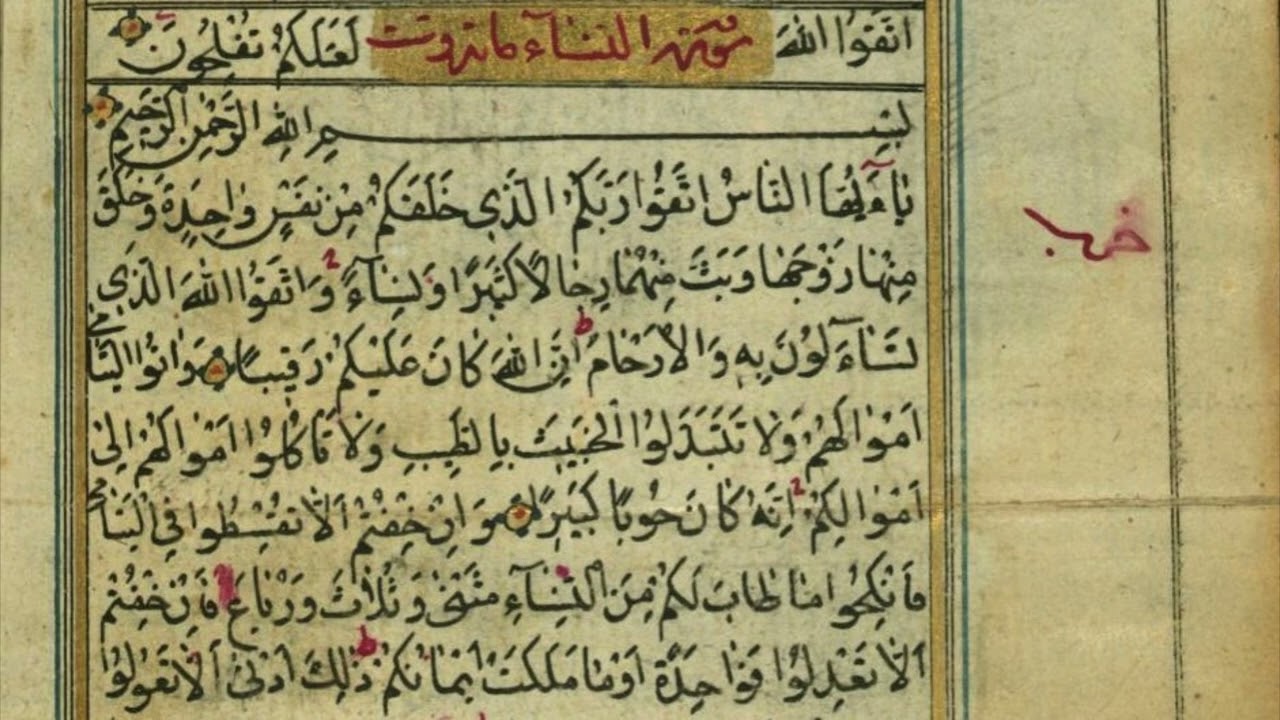 اتَّقُوا اللَّهَ لَعَلَّكُمْ تُفْلِحُونَ
سورة النساء
بِسْمِ اللَّهِ الرَّحْمَٰنِ الرَّحِيمِ
يَا أَيُّهَا النَّاسُ اتَّقُوا رَبَّكُمُ الَّذِي خَلَقَكُمْ مِنْ نَفْسٍ وَاحِدَةٍ وَخَلَقَ
مِنْهَا زَوْجَهَا وَبَثَّ مِنْهُمَا رِجَالًا كَثِيرًا وَنِسَاءً وَاتَّقُوا اللَّهَ الَّذِي
تَسَاءَلُونَ بِهِ وَالْأَرْحَامَ إِنَّ اللَّهَ كَانَ عَلَيْكُمْ رَقِيبًا وَآتُوا الْيَتَامَىٰ
أَمْوَالَهُمْ وَلَا تَتَبَدَّلُوا الْخَبِيثَ بِالطَّيِّبِ وَلَا تَأْكُلُوا أَمْوَالَهُمْ إِلَىٰ
أَمْوَالِكُمْ إِنَّهُ كَانَ حُوبًا كَبِيرًا وَإِنْ خِفْتُمْ أَلَّا تُقْسِطُوا فِي الْيَتَامَىٰ
فَانْكِحُوا مَا طَابَ لَكُمْ مِنَ النِّسَاءِ مَثْنَىٰ وَثُلَاثَ وَرُبَاعَ فَإِنْ خِفْتُمْ
أَلَّا تَعْدِلُوا فَوَاحِدَةً أَوْ مَا مَلَكَتْ أَيْمَانُكُمْ ذَٰلِكَ أَدْنَىٰ أَلَّا تَعُولُوا